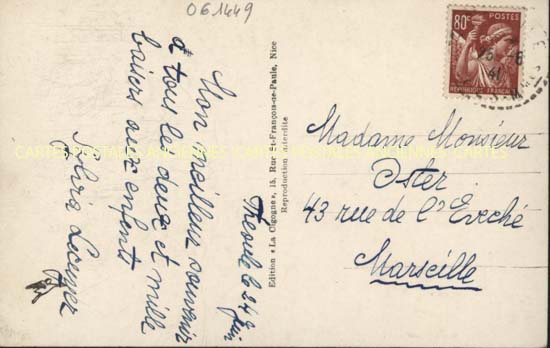 061449
Théoule le 24 Juin
Mon meilleur souvenir
à tous les deux et mille
baisers aux enfants
Edition "La Cigogne", 15, Rue St-François-de-Paule, Nice
Reproduction interdite
80c
POSTES
REPUBLIQUE FRANÇAISE
Madame Monsieur
Oster
43 rue de l'Evéché
Marseille
CARTES POSTALES ANCIENNES CARTES POSTALES ANCIENNES CARTES